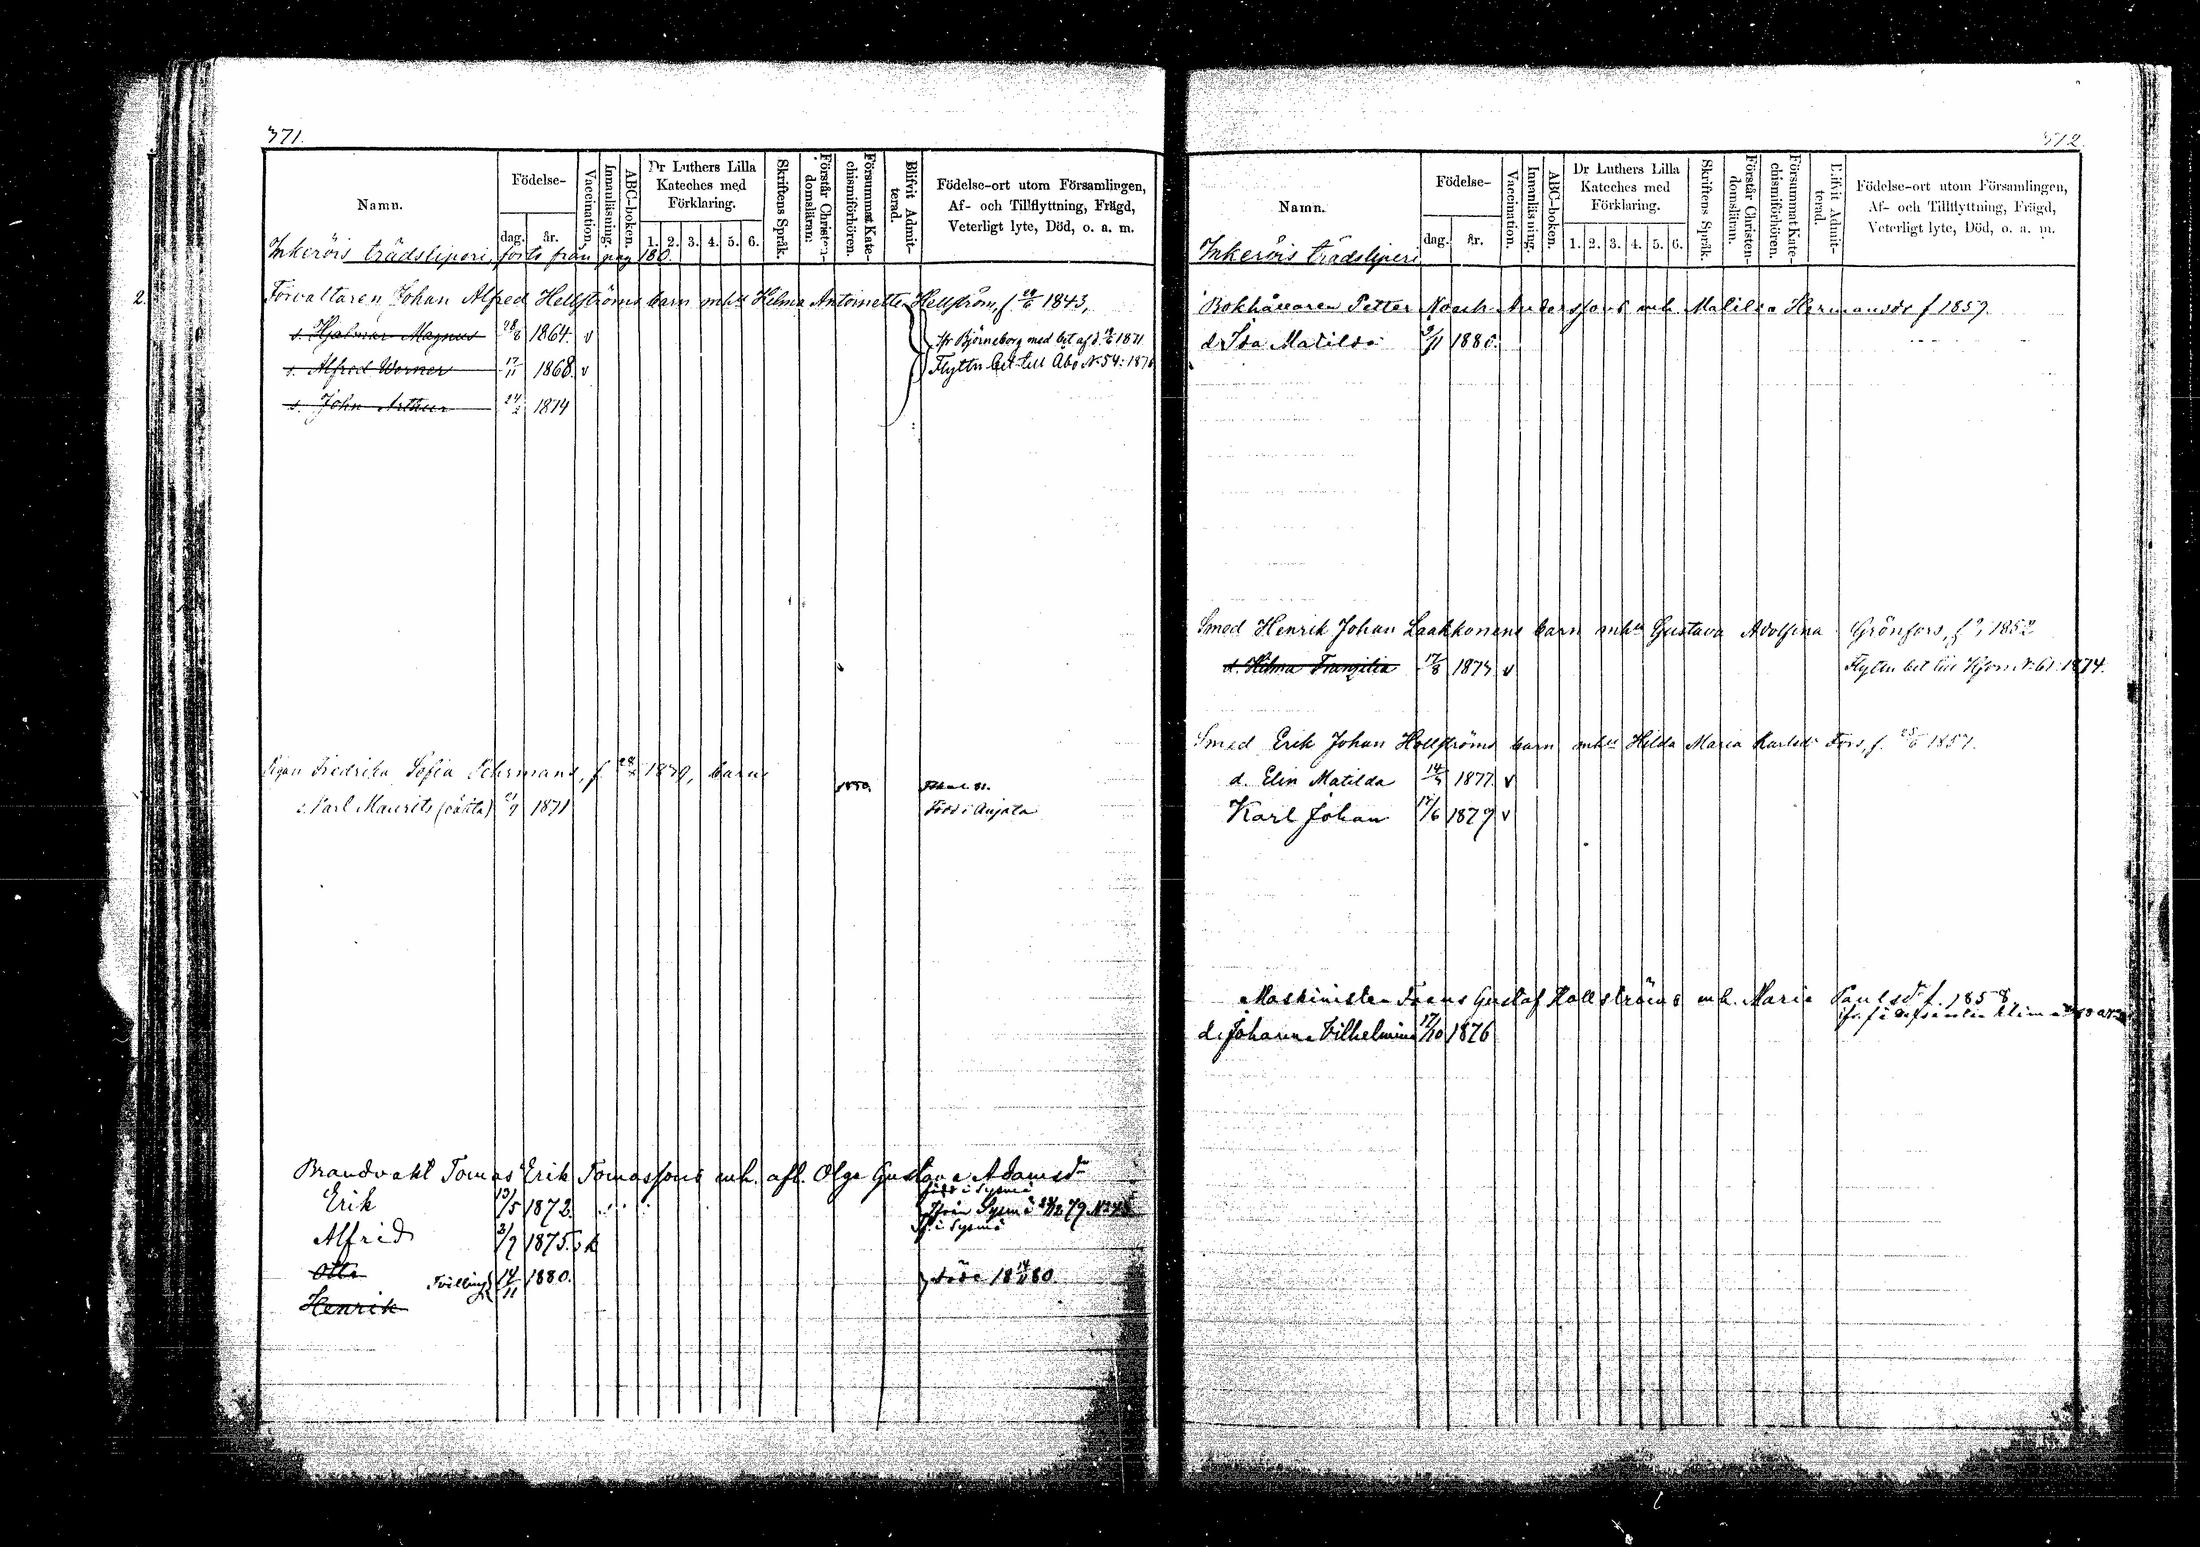 371.
Namn.
Födelse-
dag.
år.
Vaccination.
Innanläsning.
ABC-boken.
Dr Luthers Lilla
Kateches med
Förklaring.
1. 2. 3. 4. 5. 6.
Skriftens Språk.
Förstår Christen-
domsläran.
Försummat Kate-
chismiförhören.
Blifvit Admit-
terad.
Födelse-ort utom Församlingen,
Af- och Tillflyttning, Frägd,
Veterligt lyte, Död, o. a. m.
Inkerois trädsliperi, forts från pag 180.
2. Förvaltaren Johan Alfred Hellströms barn mhu Hilma Antoinette Hellström, f. 1843,
s. Hjalmar Magnus 28/8 1864. v fr Björneborg med bet af d. 1871
s. Alfred Werner 17/11 1868. v Flyttn bet till Åbo N. 54: 1876
s. John Arthur 24/2 1874
Pigan Fredrika Sofia barn
1880.
s. Karl Maurits (oäkta) 21/9 1871 Född i Anjala
Brandvakt Tomas Erik Tomassons mh. afl. Olga Gustava Adamsdr
född i Sysmä
Erik 13/5 1872. från Sysmä 79 N
f. i Sysmä
Alfrid 3/7 1875. v k
Otto Tvilling 14/11 1880. döde 18 14/11 80.
Henrik
372.
Namn.
Födelse-
dag.
år.
Vaccination.
Innanläsning.
ABC-boken.
Dr Luthers Lilla
Kateches med
Förklaring.
1. 2. 3. 4. 5. 6.
Skriftens Språk.
Förstår Christen-
domsläran.
Försummat Kate-
chismiförhören.
Blifvit Admit-
terad.
Födelse-ort utom Församlingen,
Af- och Tillflyttning, Frägd,
Veterligt lyte, Död, o. a. m.
Inkerois trädsliperi
Bokhållaren Petter Noach Anderssons mh. Matilda Hermansdr f 1859.
d. Ida Matilda 9/11 1880.
Smed Henrik Johan Laakkonens barn mhu Gustava Adolfina Grönfors, f 1852
d. Hilma 17/8 1873 v Flyttn bet till N. 61: 1874.
Smed Erik Johan Hollströms barn mhu Hilda Maria Karlsdr Fors, f. 25/6 1857.
d. Elin Matilda 1877. v
Karl Johan 12/6 1879 v
Maskinisten Frans Gustaf Hallströms mh. Maria Paulsdr f. 1858
d. Johanna Vilhelmina 17/10 1876